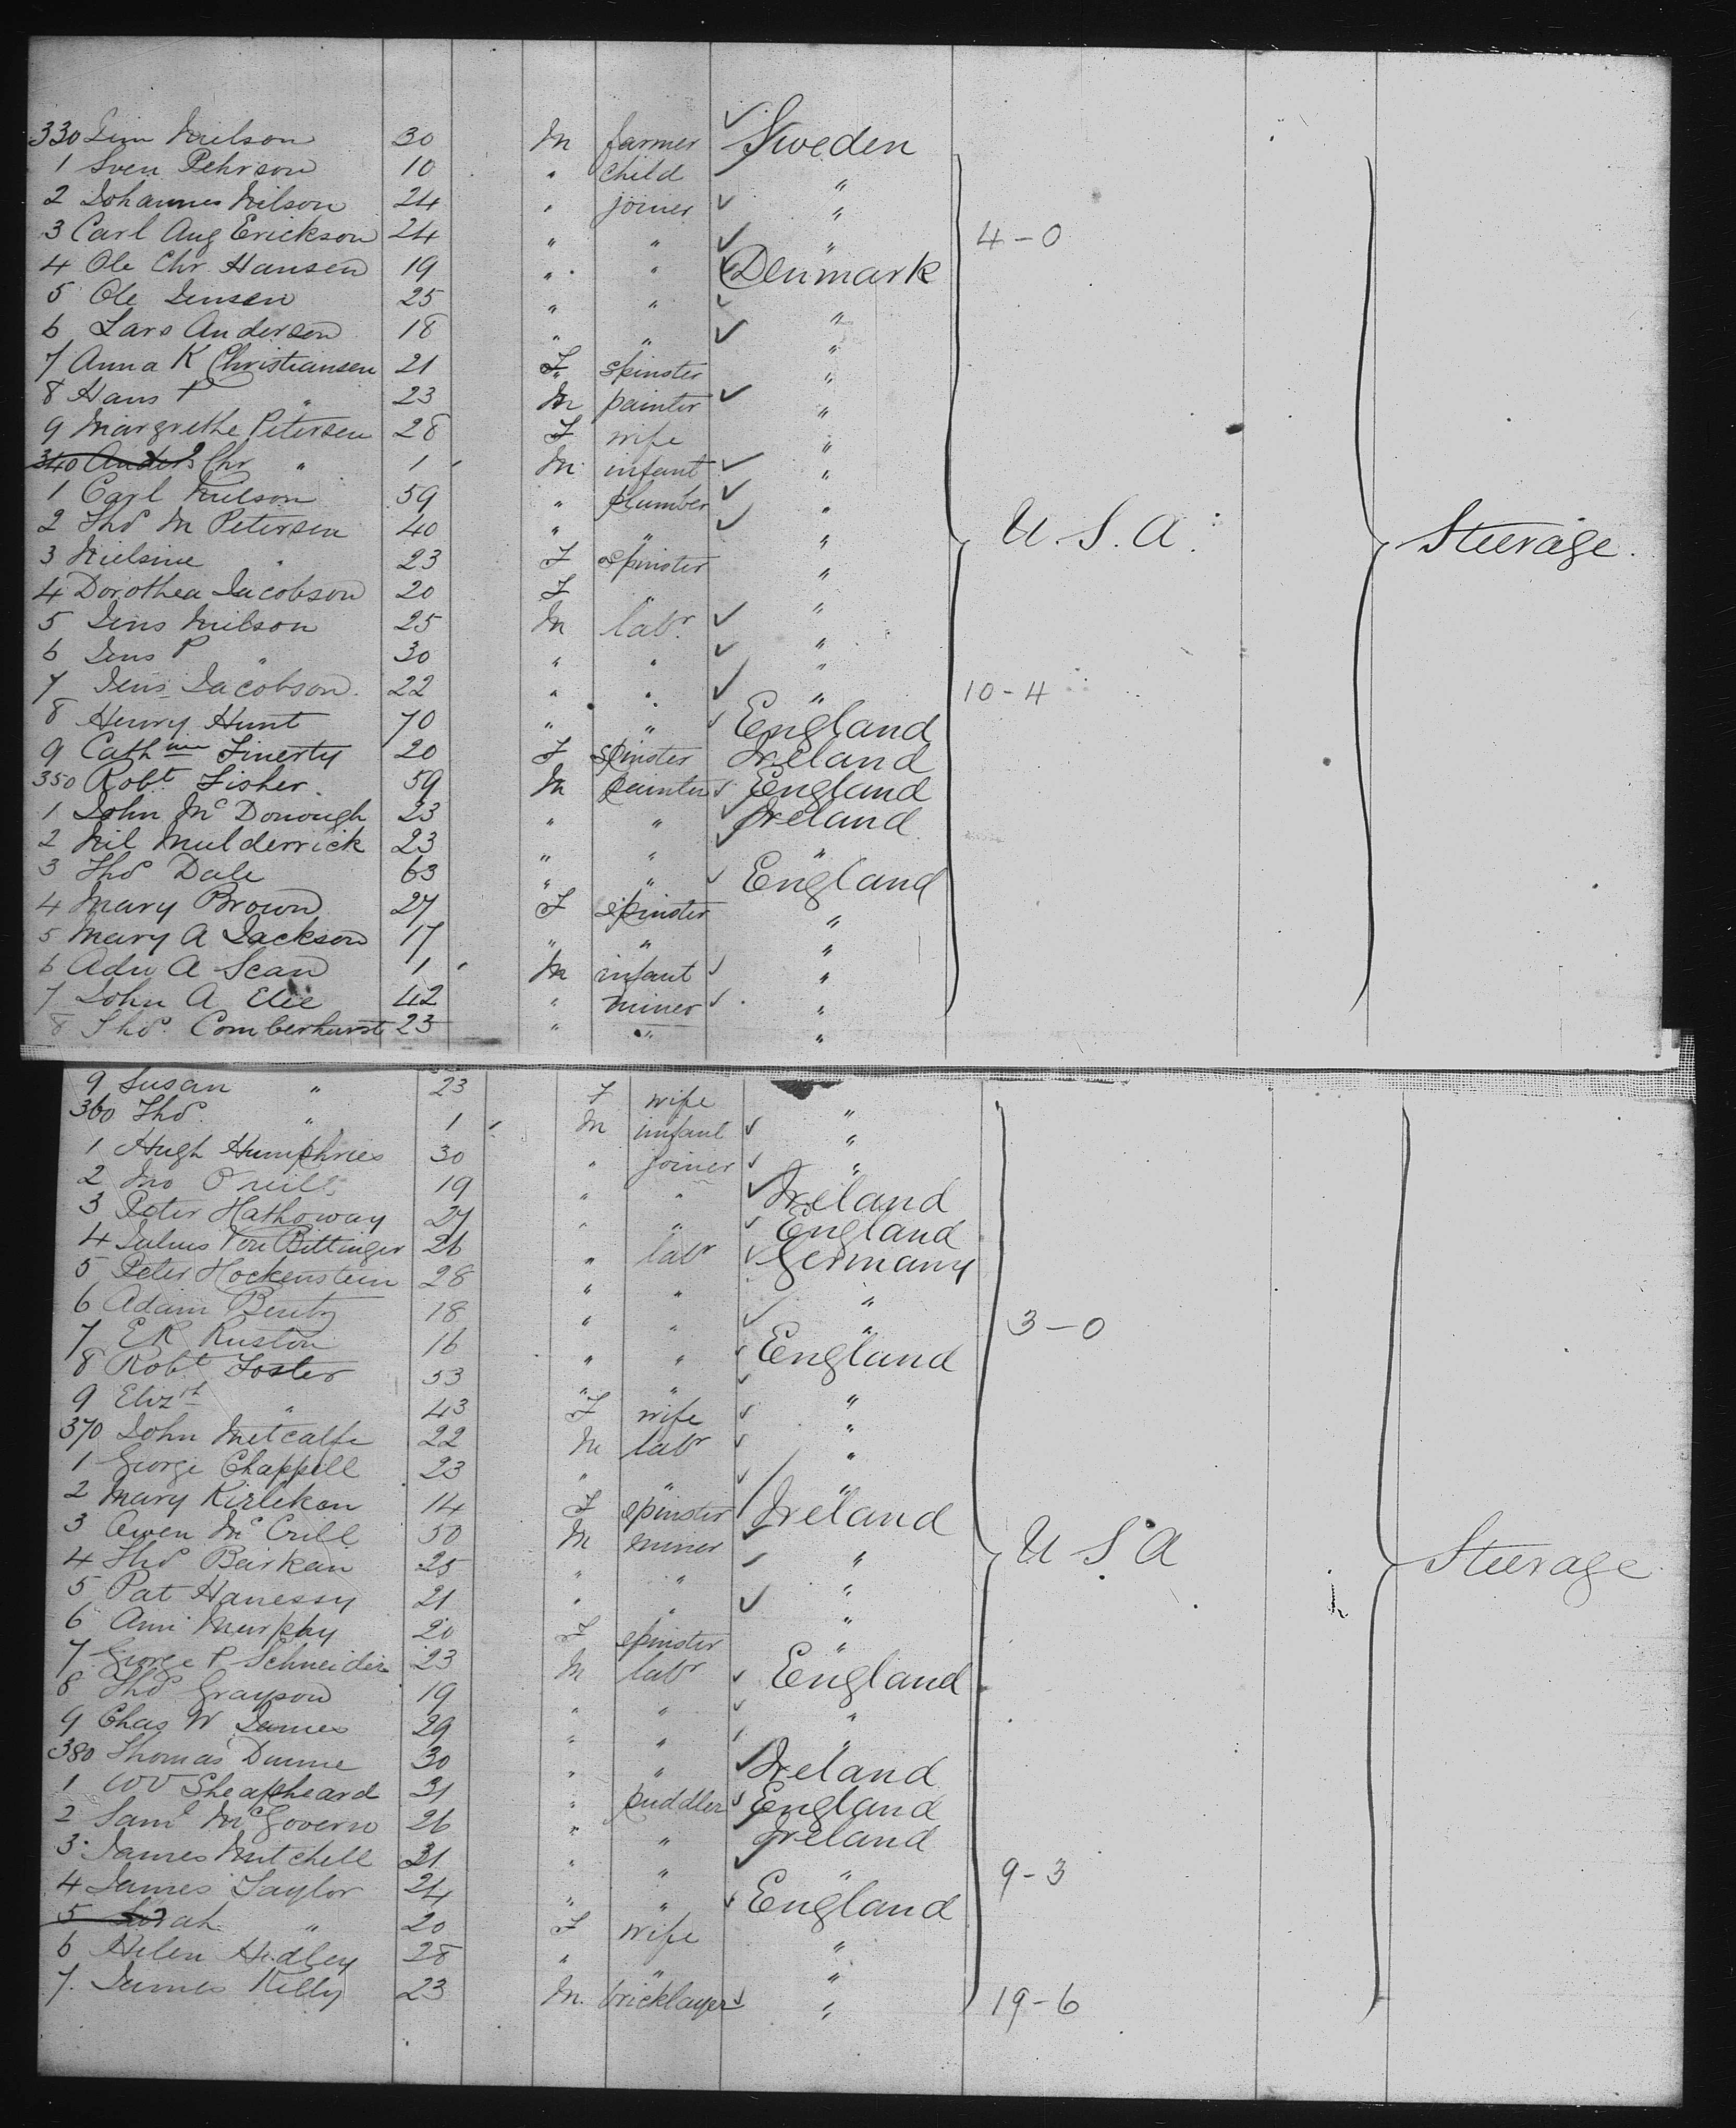 330 Jim Nielson 30 M farmer ✓ Sweden
1 Sven Pehrson 10 " child "
2 Johannes Nilson 24 " joiner ✓ "
3 Carl Aug Erickson 24 " " ✓ " 4-0
4 Ole Chr. Hansen 19 " " ✓ Denmark
5 Ole Jensen 25 " " ✓ "
6 Lars Andersen 18 " " ✓ "
7 Anna K Christiansen 21 F spinster "
8 Hans P " 23 M painter ✓ "
9 Margrethe Petersen 28 F wife "
340 Anders Chr " 1 M infant ✓ "
1 Carl Nielson 59 " plumber ✓ "
2 Thos M Petersen 40 " " ✓ " U.S.A. Steerage.
3 Nielsine " 23 F spinster "
4 Dorothea Jacobson 20 F " "
5 Jens Nielson 25 M labr. ✓ "
6 Jens P " 30 " " ✓ "
7 Jens Jacobson 22 " " ✓ " 10-4
8 Henry Hunt 70 " " ✓ England
9 Cathne Finerty 20 F spinster Ireland
350 Robt Fisher 59 M painter ✓ England
1 John McDonough 23 " " ✓ Ireland
2 Mulderrick 23 " " ✓ "
3 Thos Dale 63 " " ✓ England
4 Mary Brown 27 F spinster "
5 Mary A Jackson 17 " " "
6 A Scan 1 M infant ✓ "
7 John A 42 " miner ✓ "
8 Thos. Comberhurst 23 " " "
9 Susan " 23 F wife "
360 Thos. " 1 M infant ✓ "
1 Hugh Humphries 30 " joiner ✓ "
2 Jno O'neill 19 " " ✓ Ireland
3 Peter Hathoway 27 " " ✓ England
4 Julius Von Bittinger 26 " labr ✓ Germany
5 Peter Hockenstein 28 " " "
6 Adam Bentz 18 " " ✓ " 3-0
7 E R Ruston 16 " " ✓ England
8 Robt Foster 53 " " ✓ "
9 Elizth " 43 F wife ✓ "
370 John Metcalfe 22 M labr ✓ "
1 George Chappell 23 " " ✓ "
2 Mary Kirlekan 14 F spinster Ireland
3 Owen McCrill 50 M miner ✓ " U S A Steerage
4 Thos Beirkan 25 " " ✓ "
5 Pat Hanessy 21 " " ✓ "
6 Ann Murphy 20 F spinster "
7 George P Schneider 23 M labr ✓ England
8 Thos Grayson 19 " " ✓ "
9 Chas W James 29 " " "
380 Thomas Dunne 30 " " ✓ Ireland
1 Sheapheard 31 " puddler ✓ England
2 Saml McGovern 26 " " Ireland
3 James Mitchell 31 " " ✓ " 9-3
4 James Taylor 24 " " ✓ England
5 Sarah " 20 F wife "
6 Helen Hedley 28 " " "
7. James Kelly 23 M. bricklayer ✓ " 19-6